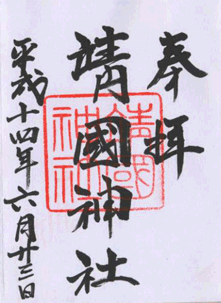 奉拝
靖國神社
平成十四年六月廿三日
靖國神社